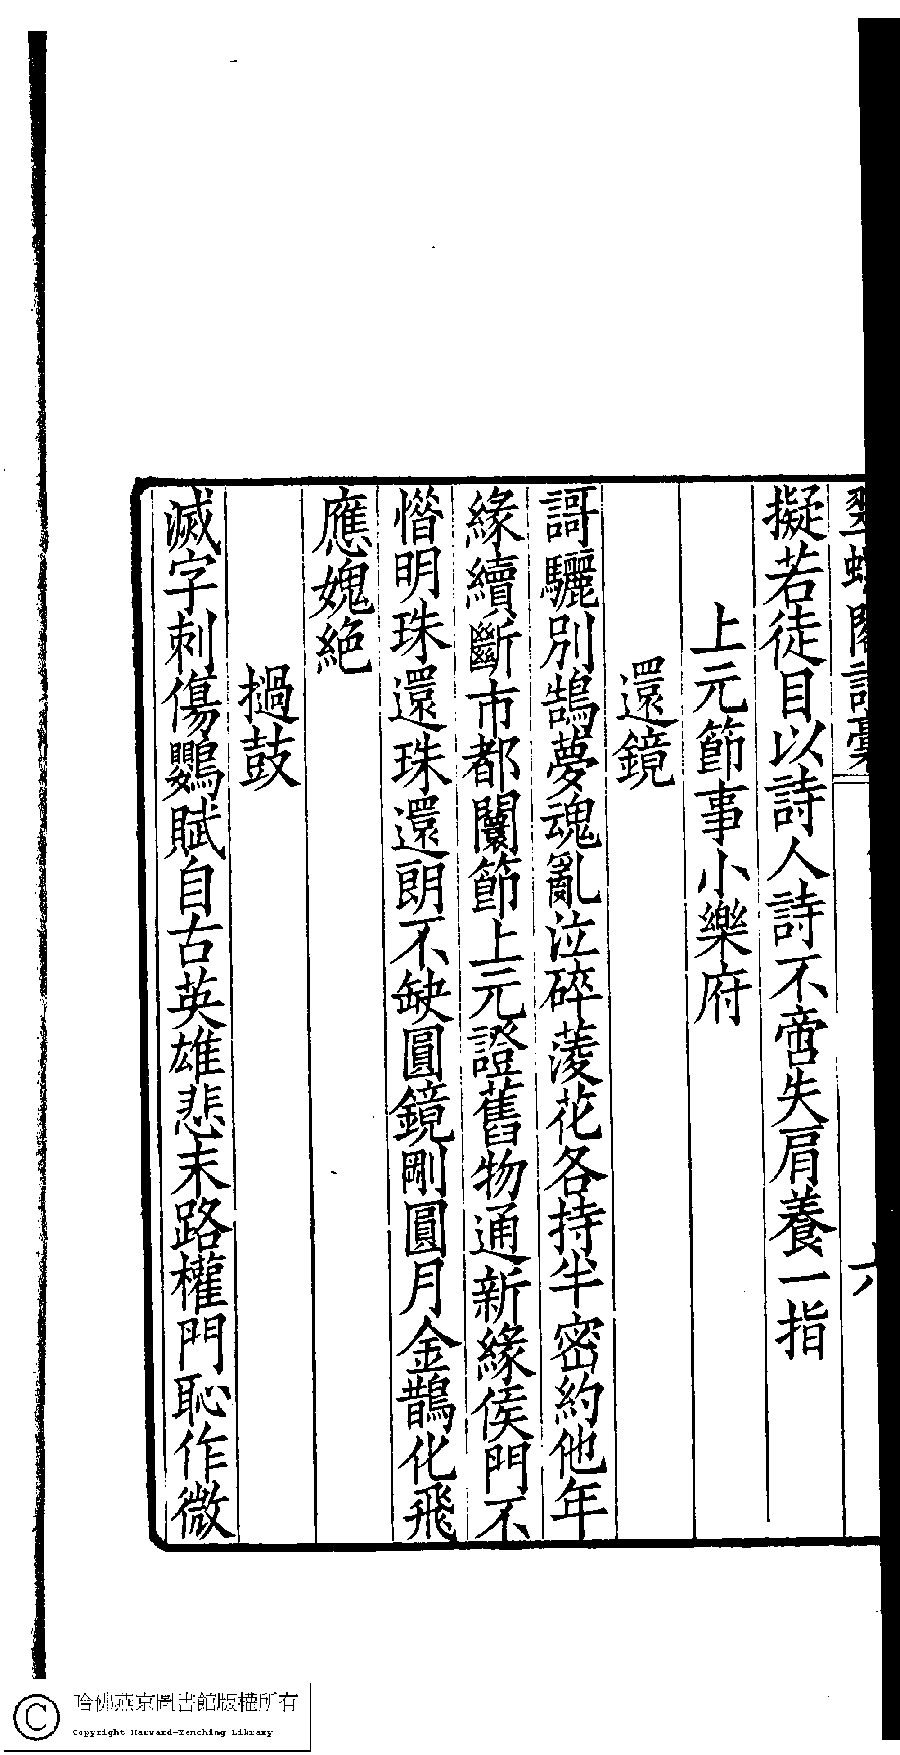 翠螺閣詩藁
六
擬若徒目以詩人詩不啻失肩養一指
上元節事小樂府
還鏡
謌驪別鵠夢魂亂泣碎蔆花各持半密約他年
緣續斷市都闤節上元證舊物通新緣侯門不
惜明珠還珠還朗不缺圓鏡剛圓月金鵲化飛
應媿絕
撾鼓
滅字刺傷鸚賦自古英雄悲末路權門恥作微
哈佛燕京圖書館版權所有
Copyright Harvard-Yenching Library